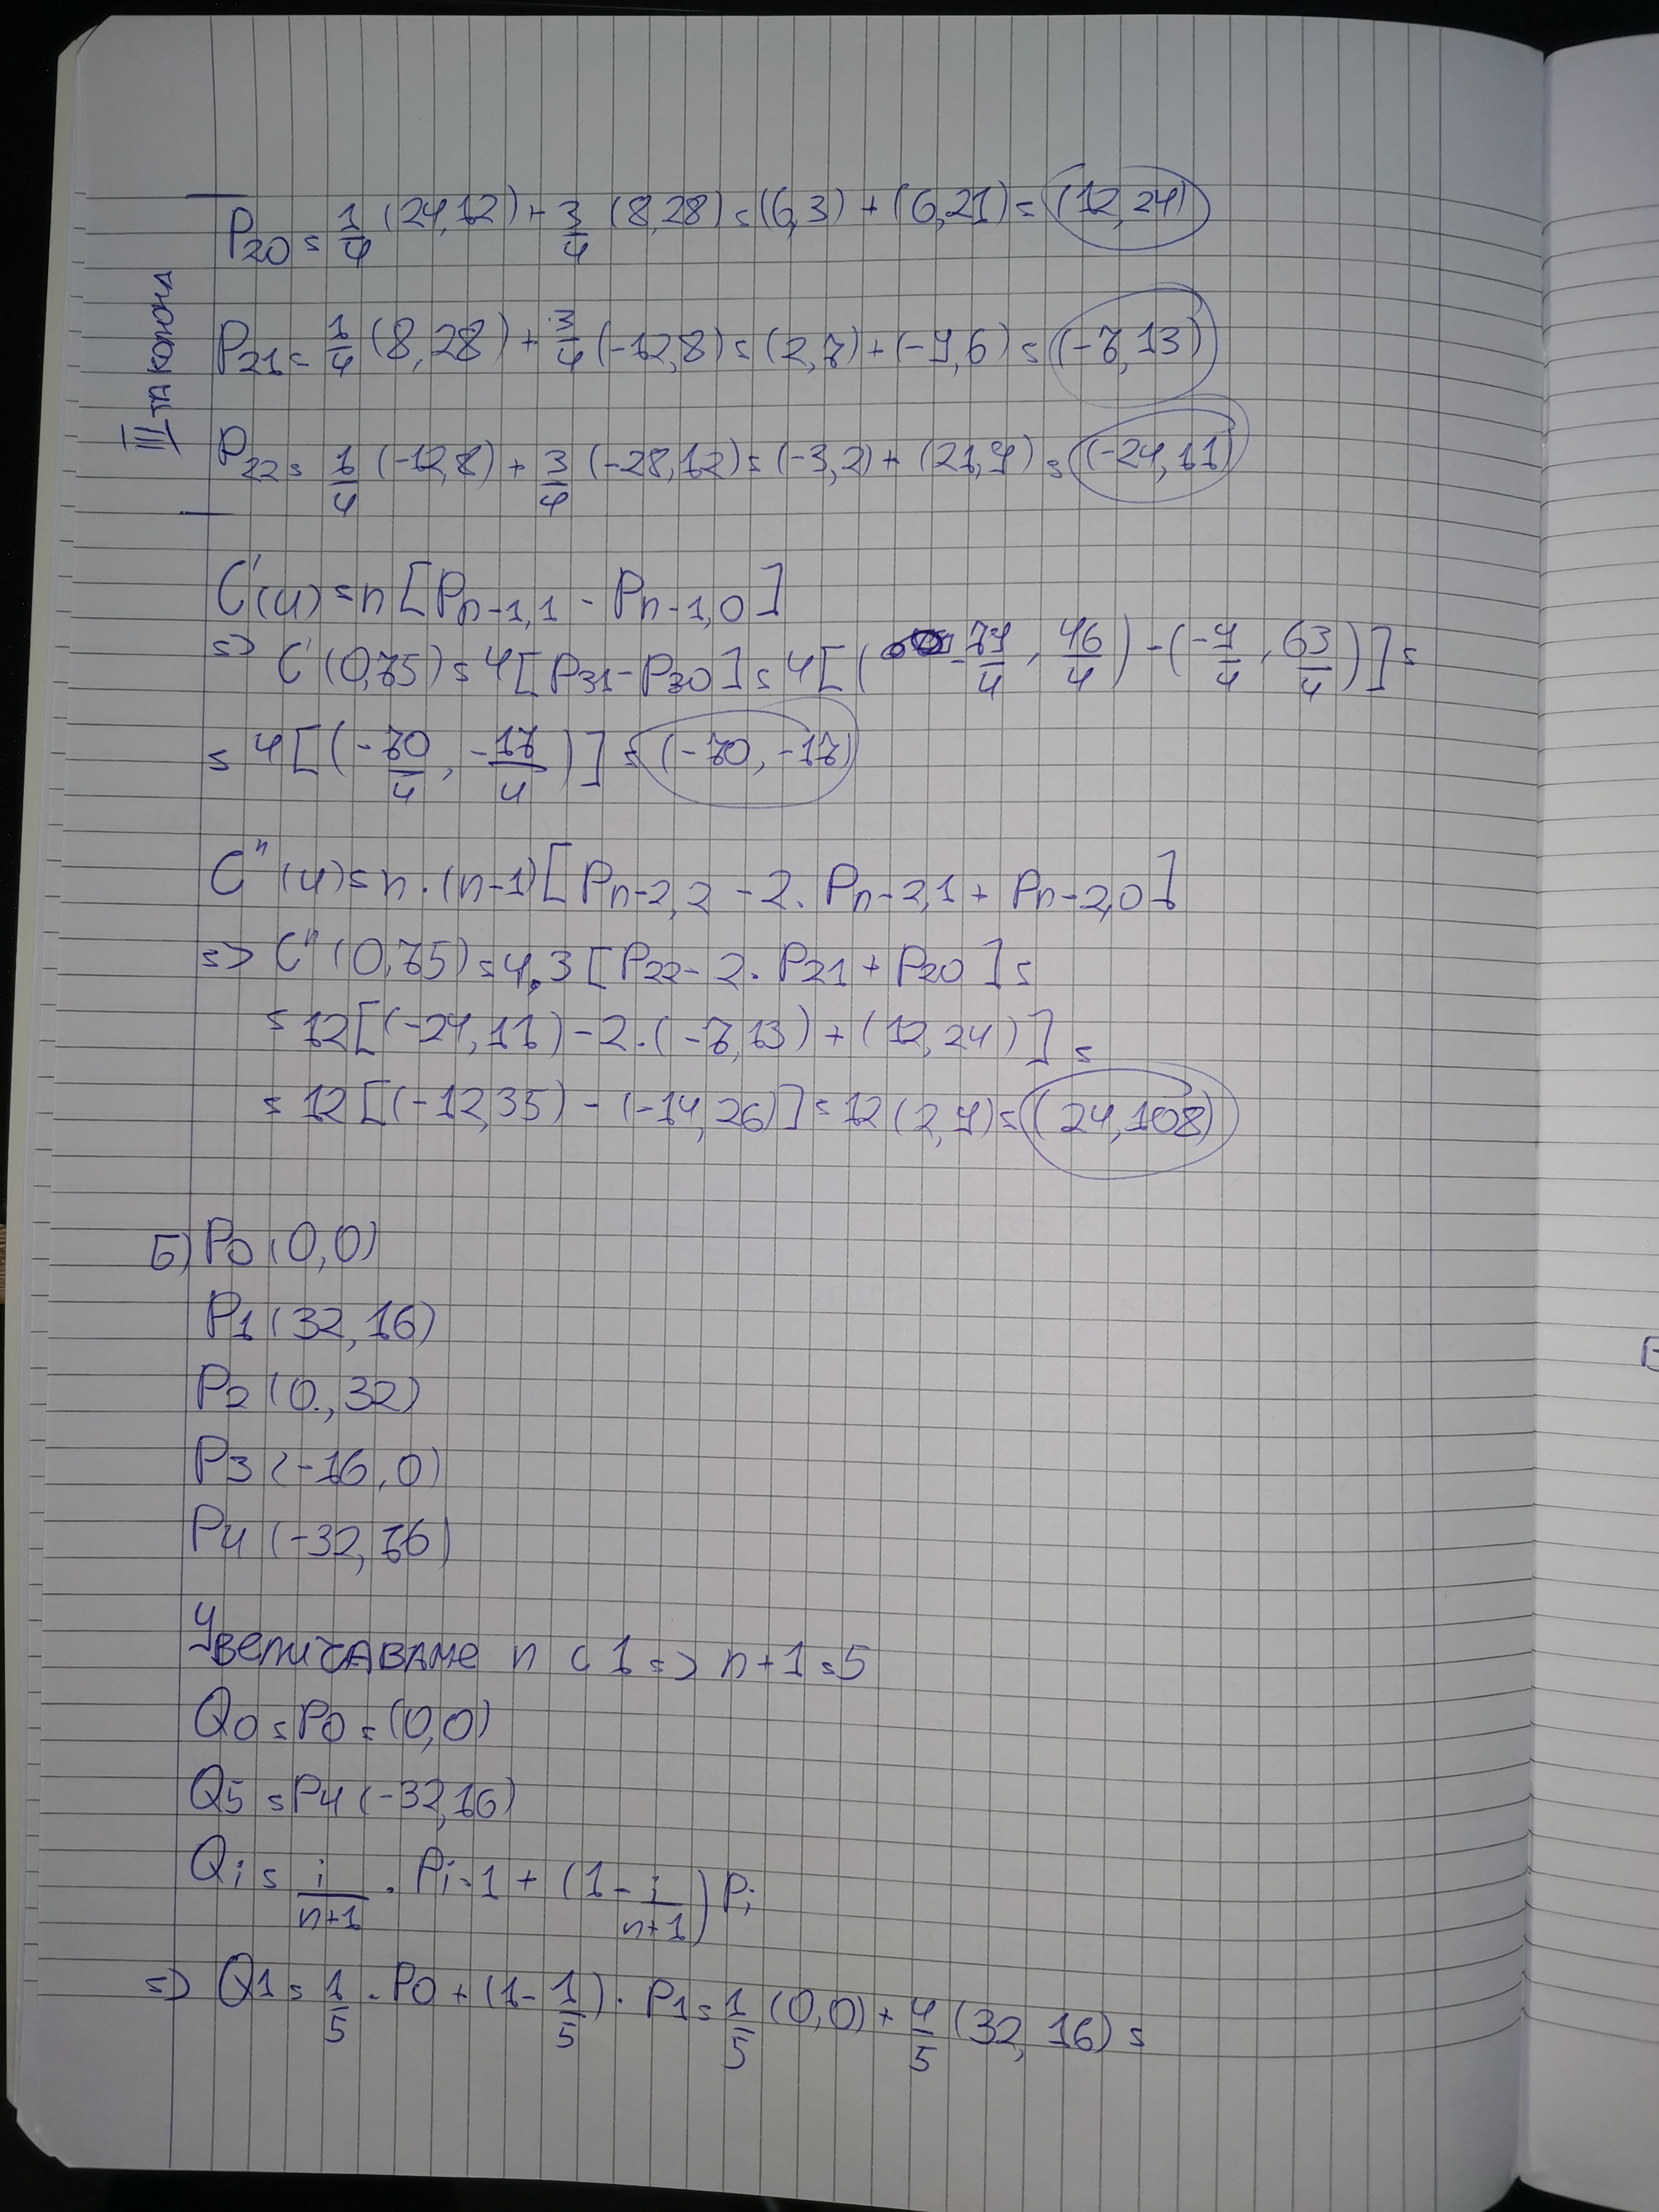 III-та колона
P20 = 1/4 (24,12) + 3/4 (8,28) = (6,3) + (6,21) = (12,24)
P21 = 1/4 (8,28) + 3/4 (-12,8) = (2,7) + (-9,6) = (-7,13)
P22 = 1/4 (-12,8) + 3/4 (-28,12) = (-3,2) + (21,9) = (-24,11)
C'(u) = n [Pn-1,1 - Pn-1,0]
=> C'(0,75) = 4[P31-P30] = 4[(-79/4, 46/4) - (-9/4, 63/4)] =
= 4[(-70/4, -17/4)] = (-70,-17)
C''(u) = n.(n-1)[Pn-2,2 - 2. Pn-2,1 + Pn-2,0]
=> C''(0,75) = 4.3 [P22 - 2. P21 + P20] =
= 12[(-24,11) - 2.(-7,13) + (12,24)] =
= 12 [(-12,35) - (-14,26)] = 12 (2,9) = (24,108)
Б) P0 (0,0)
P1 (32,16)
P2 (0,32)
P3 (-16,0)
P4 (-32,16)
Увеличаваме n с 1 => n+1 = 5
Q0 = P0 = (0,0)
Q5 = P4 (-32,16)
Qi = i/n+1 . Pi-1 + (1 - i/n+1) Pi
=> Q1 = 1/5 . P0 + (1 - 1/5) . P1 = 1/5 (0,0) + 4/5 (32,16) =